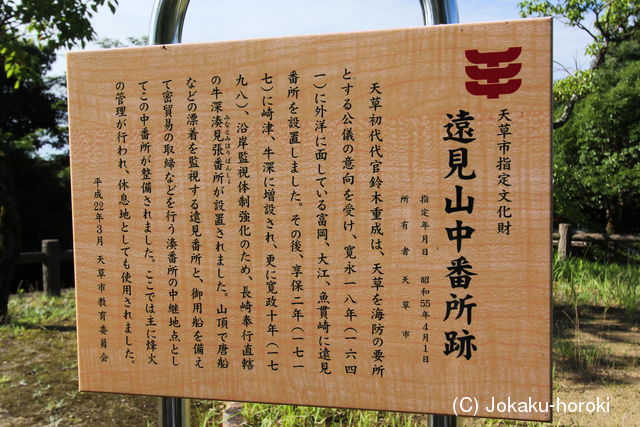 天草市指定文化財
遠見山中番所跡
指定年月日　昭和55年4月1日
所有者　天草市
天草初代代官鈴木重成は、天草を海防の要所
とする公儀の意向を受け、寛永一八年（一六四
一）に外洋に面している富岡、大江、魚貫崎に遠見
番所を設置しました。その後、享保二年（一七一
七）に崎津、牛深に増設され、更に寛政十年（一七
九八）、沿岸監視体制強化のため、長崎奉行直轄
の牛深湊見張番所が設置されました。山頂で唐船
みなとみはりばんしょ
などの漂着を監視する遠見番所と、御用船を備え
て密貿易の取締などを行う湊番所の中継地点とし
てこの中番所が整備されました。ここでは主に烽火
の管理が行われ、休息地としても使用されました。
平成22年3月　天草市教育委員会
(C) Jokaku-horoki